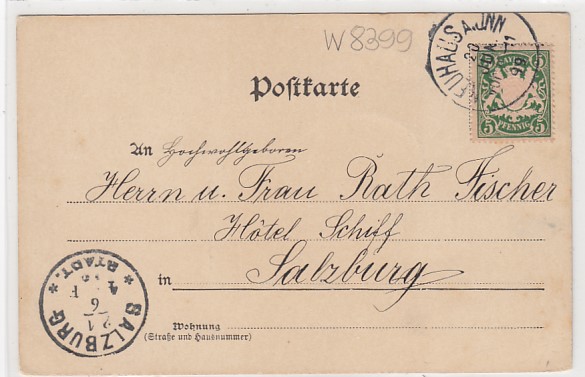 W 8399
NEUHAUS A.INN
20 JUN
99
5 5
PFENNIG
Postkarte
An Hochwohlgeboren
Herrn u. Frau Rath Fischer
Hôtel Schiff
in Salzburg
Wohnung
(Straße und Hausnummer)
SALZBURG * STADT. *
21
6
F